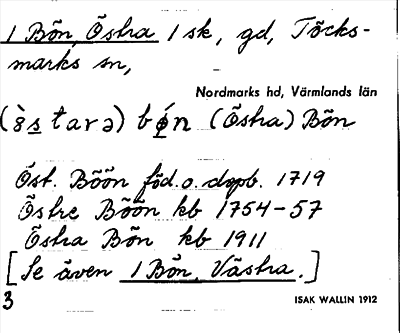 1 Bön, Östra 1 sk, gd, Töcks-
marks sn,
Nordmarks hd, Värmlands län
(ö̀starə) bǿn (Östra) Bön
Öst. Böön föd. o. dopb. 1719
Östre Böön kb 1754-57
Östra Bön kb 1911
[Se även 1 Bön, Västra.]
3
ISAK WALLIN 1912